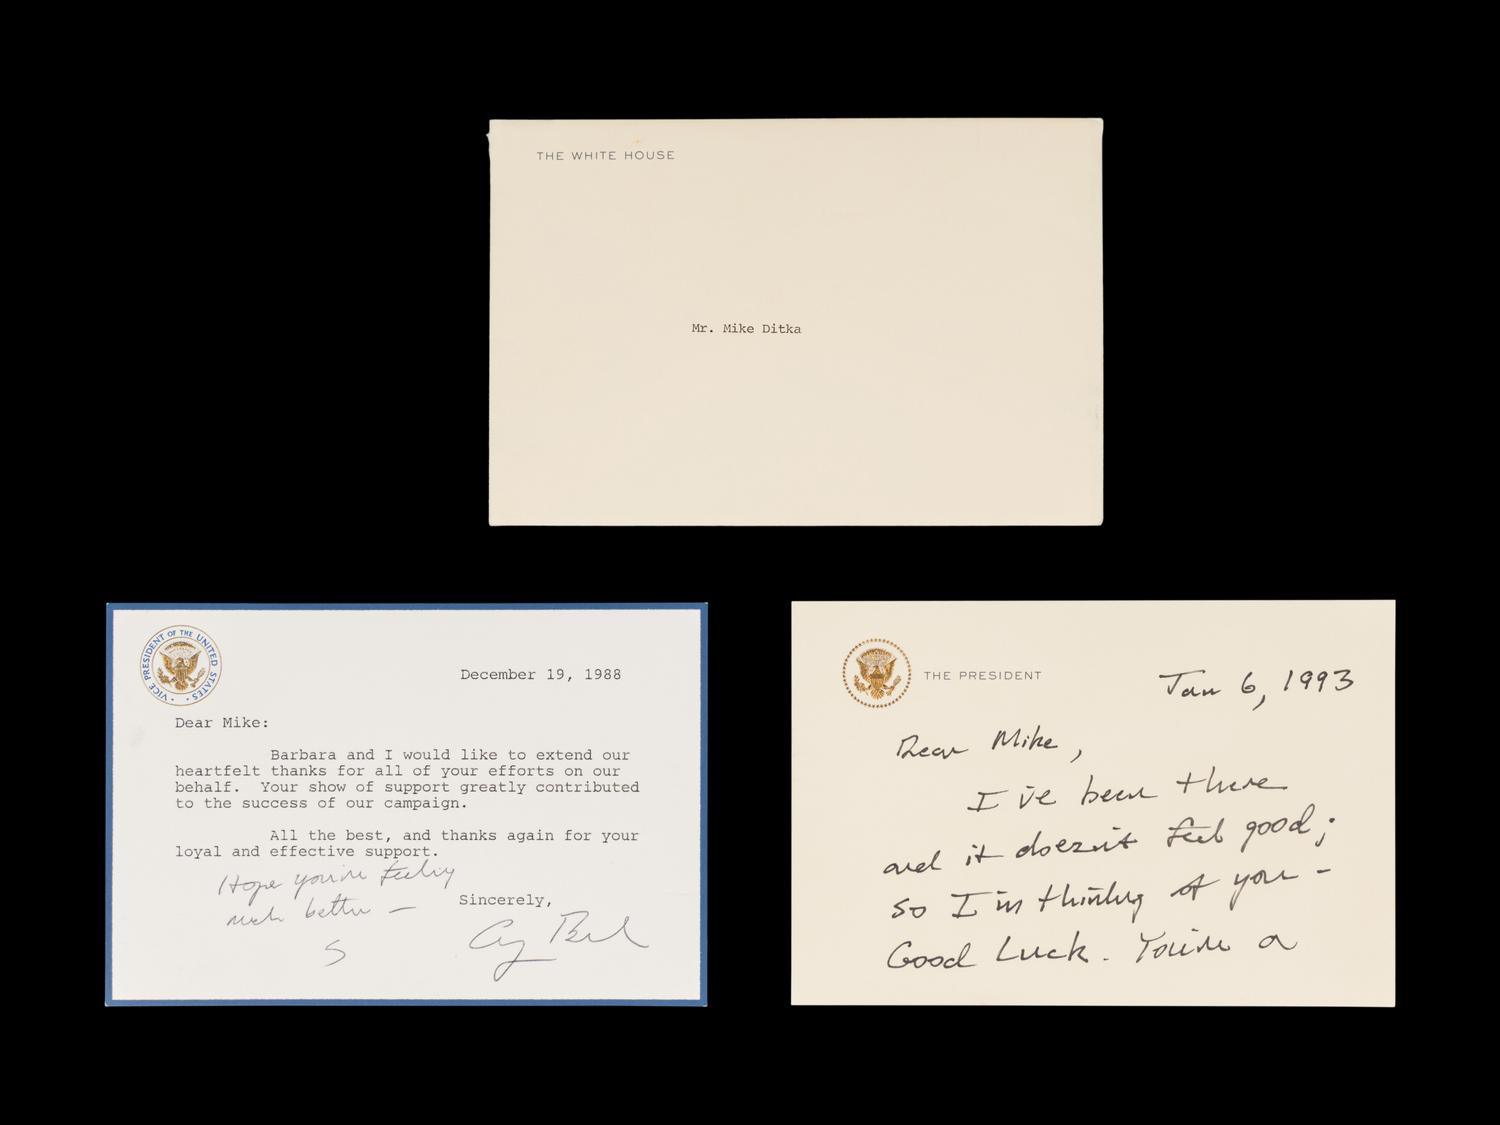 THE WHITE HOUSE
Mr. Mike Ditka
VICE PRESIDENT OF THE UNITED STATES
December 19, 1988
Dear Mike:
Barbara and I would like to extend our
heartfelt thanks for all of your efforts on our
behalf. Your show of support greatly contributed
to the success of our campaign.
All the best, and thanks again for your
loyal and effective support.
Hope you're feeling
much better —
Sincerely,
THE PRESIDENT
Jan 6, 1993
Dear Mike,
I've been there
and it doesn't feel good;
so I'm thinking of you –
Good Luck. You're a